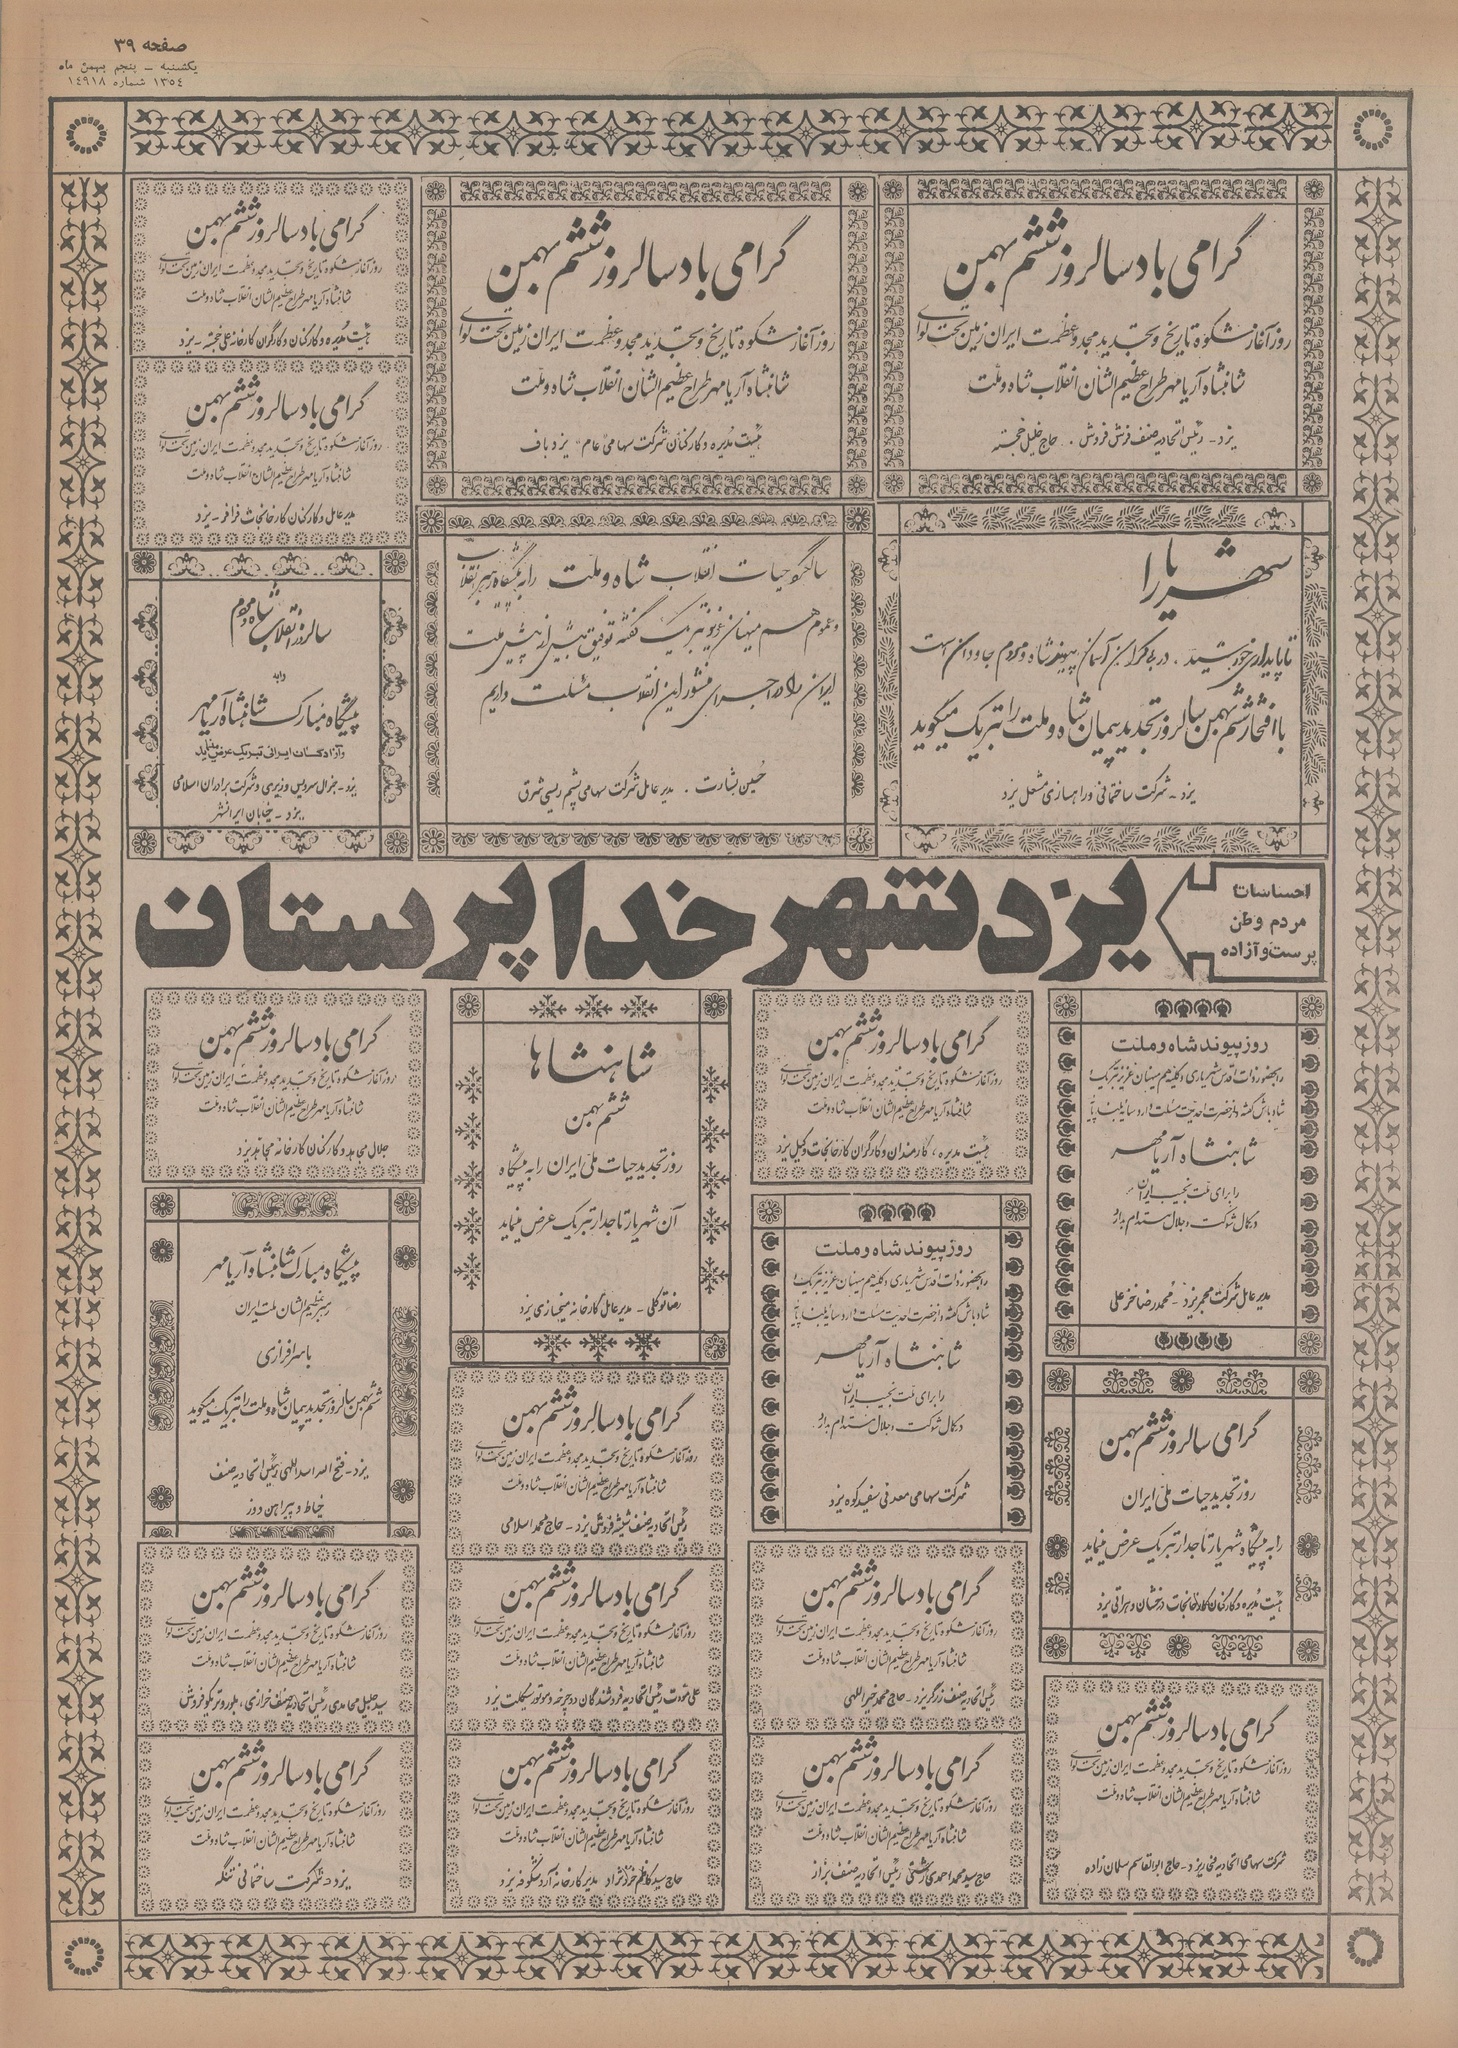 صفحه ۳۹
یکشنبه - پنجم بهمن ماه
۱۳۵٤ شماره ۱٤۹۱۸
گرامی باد سالروز ششم بهمن
روز آغاز شکوه تاریخ و تجدید مجد و عظمت ایران زمین تحت لوای
شاهنشاه آریامهر طراح عظیم الشأن انقلاب شاه و ملت
یزد - رئیس اتحادیه صنف فرش فروش . حاج خلیل خجسته
گرامی باد سالروز ششم بهمن
روز آغاز شکوه تاریخ و تجدید مجد و عظمت ایران زمین تحت لوای
شاهنشاه آریامهر طراح عظیم الشأن انقلاب شاه و ملت
هیئت مدیره و کارکنان شرکت سهامی عام یزد باف
گرامی باد سالروز ششم بهمن
روز آغاز شکوه تاریخ و تجدید مجد و عظمت ایران زمین تحت لوای
شاهنشاه آریامهر طراح عظیم الشان انقلاب شاه و ملت
هیئت مدیره و کارکنان و کارگران کارخانه علی خجسته - یزد
گرامی باد سالروز ششم بهمن
روز آغاز شکوه تاریخ و تجدید مجد و عظمت ایران زمین تحت لوای
شاهنشاه آریامهر طراح عظیم الشان انقلاب شاه و ملت
مدیر عامل و کارکنان کارخانجات فرافر - یزد
شهریارا
تا پایداری خورشید . در بیکران آسمان پیوند شاه و مردم جاودان است
با افتخار ششم بهمن سالروز تجدید پیمان شاه و ملت را تبریک میگوید
یزد - شرکت ساختمانی و راهسازی مشعل یزد
سالگرد حیات انقلاب شاه و ملت را به پیشگاه رهبر انقلاب
و عموم هم میهنان عزیز تبریک گفته توفیق بیش از پیش ملت
ایران را در اجرای منشور این انقلاب مسئلت داریم
حسین بشارت . مدیر عامل شرکت سهامی پشم ریسی شرق
سالروز انقلاب شاه و مردم
را به
پیشگاه مبارک شاهنشاه آریامهر
و آزادگان ایرانی تبریک عرض مینماید
یزد - جنرال سرویس وزیری و شرکت برادران اسلامی
یزد - خیابان ایرانشهر
احساسات
مردم وطن
پرست و آزاده
یزد شهر خدا پرستان
روز پیوند شاه و ملت
را بحضور ذات اقدس شهریاری و کلیه هم میهنان عزیز تبریک
شاد باش گفته و از حضرت احدیت مسئلت دارد سایه بلند پایه
شاهنشاه آریامهر
را برای ملت نجیب ایران
در کمال شوکت و جلال مستدام بدارد
مدیر عامل شرکت مجمر یزد - محمدرضا خزعلی
گرامی باد سالروز ششم بهمن
روز آغاز شکوه تاریخ و تجدید مجد و عظمت ایران زمین تحت لوای
شاهنشاه آریامهر طراح عظیم الشان انقلاب شاه و ملت
هیئت مدیره ، کارمندان و کارگران کارخانجات وکیل یزد
شاهنشاها
ششم بهمن
روز تجدید حیات ملی ایران را به پیشگاه
آن شهریار تاجدار تبریک عرض مینماید
رضا توکلی - مدیر عامل کارخانه میخسازی یزد
گرامی باد سالروز ششم بهمن
روز آغاز شکوه تاریخ و تجدید مجد و عظمت ایران زمین تحت لوای
شاهنشاه آریامهر طراح عظیم الشان انقلاب شاه و ملت
جلال مجاهد و کارکنان کارخانه مجاهد یزد
روز پیوند شاه و ملت
را بحضور ذات اقدس شهریاری و کلیه هم میهنان عزیز تبریک
شاد باش گفته و از حضرت احدیت مسئلت دارد سایه بلند پایه
شاهنشاه آریامهر
را برای ملت نجیب ایران
در کمال شوکت و جلال مستدام بدارد
شرکت سهامی معدنی سفید کوه یزد
پیشگاه مبارک شاهنشاه آریامهر
رهبر عظیم الشان ملت ایران
با سرافرازی
ششم بهمن سالروز تجدید پیمان شاه و ملت را تبریک میگوید
یزد - فتح اله اسداللهی رئیس اتحادیه صنف
خیاط و پیراهن دوز
گرامی سالروز ششم بهمن
روز تجدید حیات ملی ایران
را به پیشگاه شهریار تاجدار تبریک عرض مینماید
هیئت مدیره و کارکنان کارخانجات درخشان و هراتی یزد
گرامی باد سالروز ششم بهمن
روز آغاز شکوه تاریخ و تجدید مجد و عظمت ایران زمین تحت لوای
شاهنشاه آریامهر طراح عظیم الشان انقلاب شاه و ملت
رئیس اتحادیه صنف شیشه فروش یزد - حاج محمد اسلامی
گرامی باد سالروز ششم بهمن
روز آغاز شکوه تاریخ و تجدید مجد و عظمت ایران زمین تحت لوای
شاهنشاه آریامهر طراح عظیم الشان انقلاب شاه و ملت
رئیس اتحادیه صنف زرگر یزد - حاج محمد خیراللهی
گرامی باد سالروز ششم بهمن
روز آغاز شکوه تاریخ و تجدید مجد و عظمت ایران زمین تحت لوای
شاهنشاه آریامهر طراح عظیم الشان انقلاب شاه و ملت
علی مودت رئیس اتحادیه فروشندگان دوچرخه و موتور سیکلت یزد
گرامی باد سالروز ششم بهمن
روز آغاز شکوه تاریخ و تجدید مجد و عظمت ایران زمین تحت لوای
شاهنشاه آریامهر طراح عظیم الشان انقلاب شاه و ملت
سید جلیل محامدی رئیس اتحادیه صنف خرازی ، بلور و تریکو فروش
گرامی باد سالروز ششم بهمن
روز آغاز شکوه تاریخ و تجدید مجد و عظمت ایران زمین تحت لوای
شاهنشاه آریامهر طراح عظیم الشان انقلاب شاه و ملت
شرکت سهامی اتحادیه فخار یزد - حاج ابوالقاسم سلمان زاده
گرامی باد سالروز ششم بهمن
روز آغاز شکوه تاریخ و تجدید مجد و عظمت ایران زمین تحت لوای
شاهنشاه آریامهر طراح عظیم الشان انقلاب شاه و ملت
حاج سید محمد احمدی رئیس اتحادیه صنف بزاز
گرامی باد سالروز ششم بهمن
روز آغاز شکوه تاریخ و تجدید مجد و عظمت ایران زمین تحت لوای
شاهنشاه آریامهر طراح عظیم الشان انقلاب شاه و ملت
حاج سید کاظم خرم نژاد مدیر کارخانه آرد شکوفه یزد
گرامی باد سالروز ششم بهمن
روز آغاز شکوه تاریخ و تجدید مجد و عظمت ایران زمین تحت لوای
شاهنشاه آریامهر طراح عظیم الشان انقلاب شاه و ملت
یزد - شرکت ساختمانی تنگه